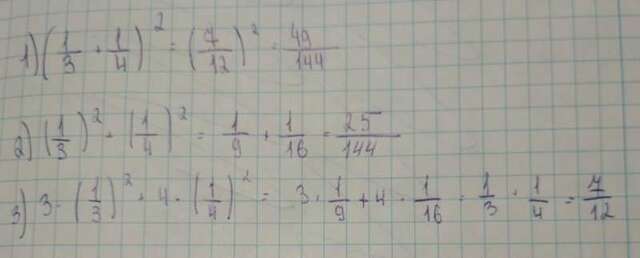 1) (1/3 + 1/4)² = (7/12)² = 49/144
2) (1/3)² + (1/4)² = 1/9 + 1/16 = 25/144
3) 3 · (1/3)² + 4 · (1/4)² = 3 · 1/9 + 4 · 1/16 = 1/3 + 1/4 = 7/12